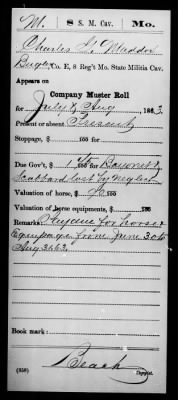 M. 8 S. M. Cav. Mo.
Charles H. Maddox
Bugler, Co. E, 8 Reg't Mo. State Militia Cav.
Appears on
Company Muster Roll
for July & Aug, 1863
Present or absent Present
Stoppage, $ 100 for
Due Gov't, $ 100 for Bayonet &
Scabbard lost by neglect
Valuation of horse, $ 100
Valuation of horse equipments, $ 100
Remarks: for horse &
Equipage from June 30 to
Aug 31, 63
Book mark:
Beach
(358) Copyist.